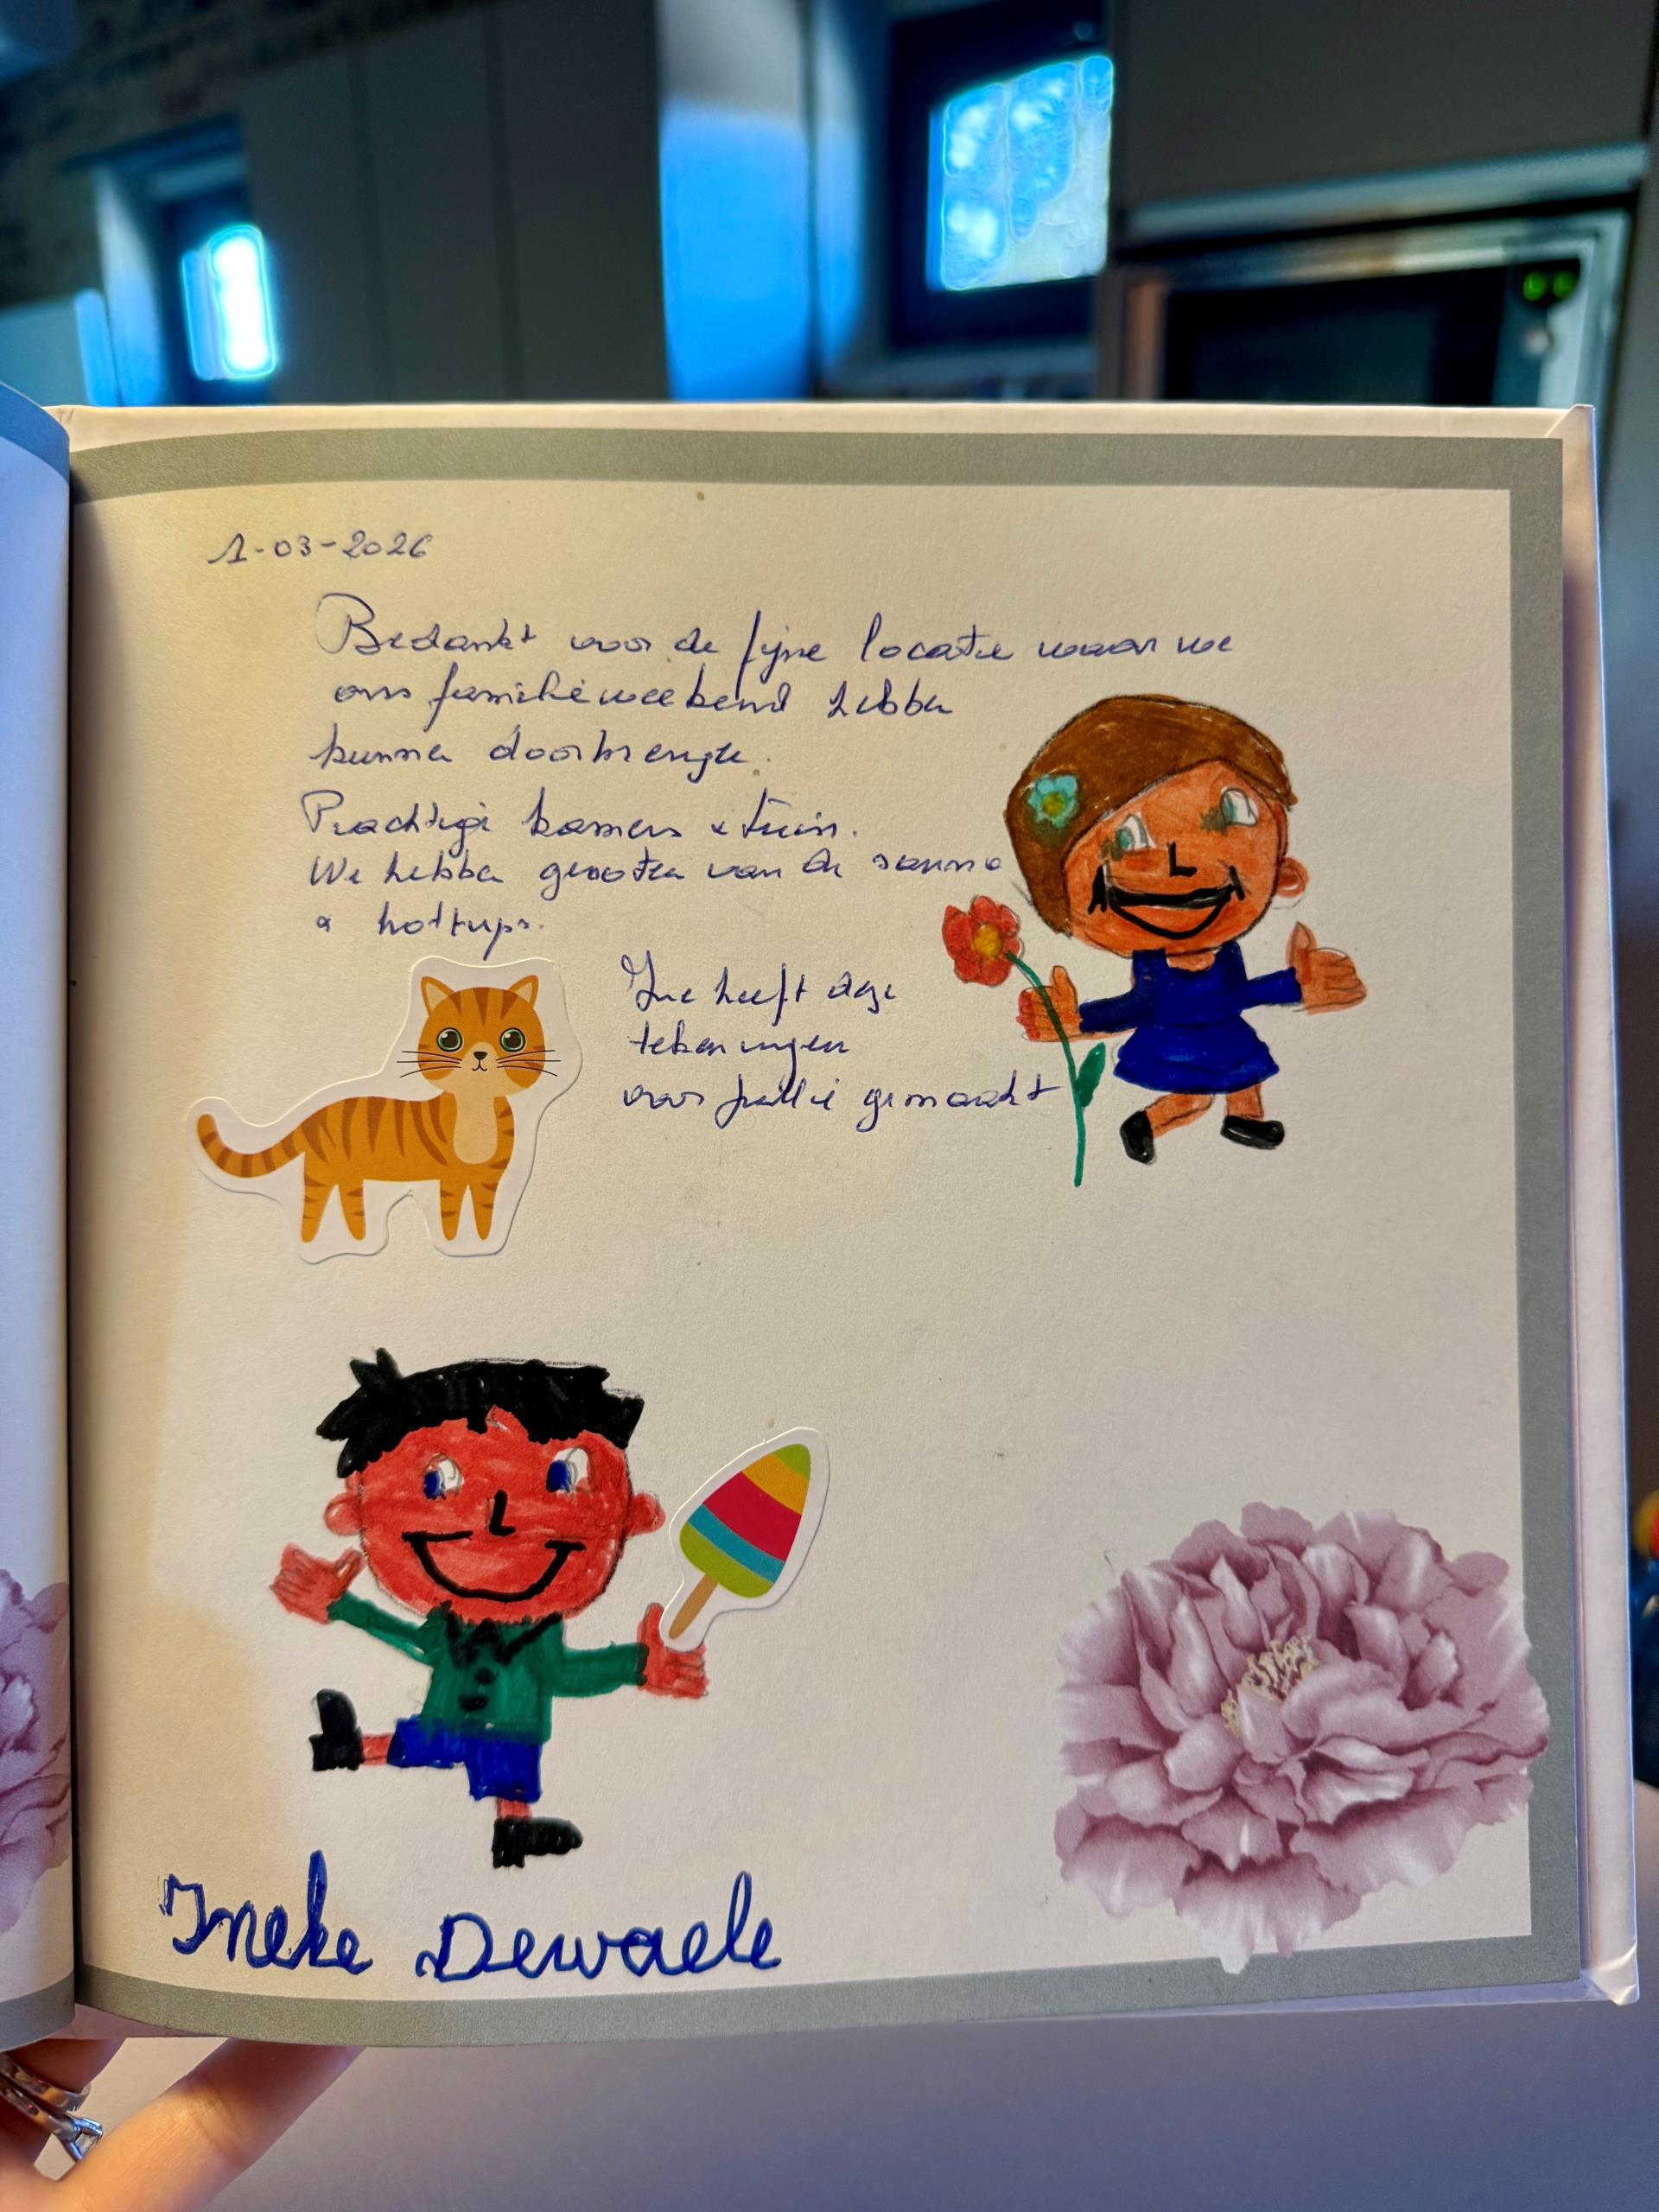 1-03-2026
Bedankt voor de fijne locatie waar we
ons familieweekend hebben
kunnen doorbrengen.
Prachtige kamers & tuin.
We hebben genoten van de sauna
& hottups.
heeft deze
tekeningen
voor jullie gemaakt
Ineke Dewaele